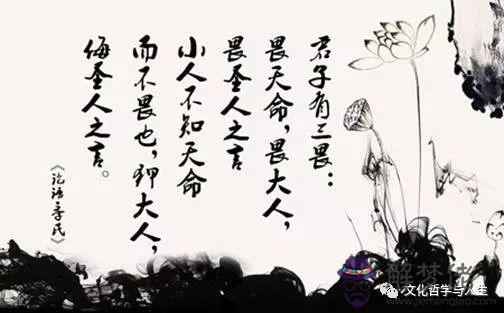 君子有三畏：
畏天命，畏大人，
畏圣人之言
小人不知天命
而不畏也，狎大人，
侮圣人之言。
《论语季氏》
文化哲学与人生